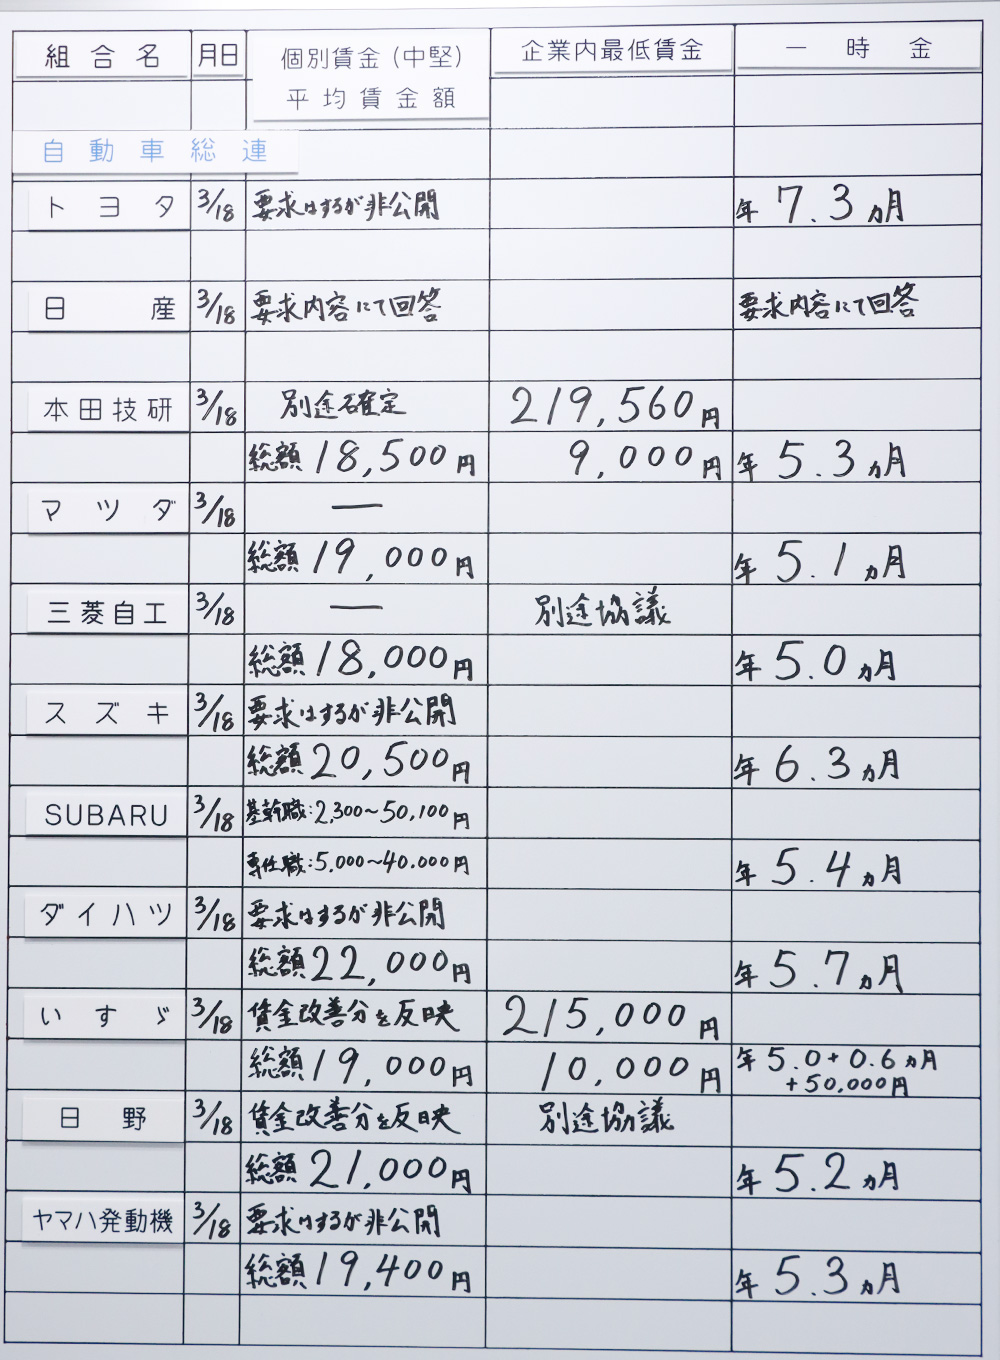 組合名 月日 個別賃金(中堅) 企業内最低賃金 一時金
平均賃金額
自動車総連
トヨタ 3/18 要求はするが非公開 年 7.3ヵ月
日産 3/18 要求内容にて回答 要求内容にて回答
本田技研 3/18 別途確定 219,560円
総額 18,500円 9,000円 年 5.3ヵ月
マツダ 3/18 ―
総額 19,000円 年 5.1ヵ月
三菱自工 3/18 ― 別途協議
総額 18,000円 年 5.0ヵ月
スズキ 3/18 要求はするが非公開
総額 20,500円 年 6.3ヵ月
SUBARU 3/18 基幹職:2,300~50,100円
専任職:5,000~40,000円 年 5.4ヵ月
ダイハツ 3/18 要求はするが非公開
総額 22,000円 年 5.7ヵ月
いすゞ 3/18 賃金改善分を反映 215,000円
総額 19,000円 10,000円 年 5.0+0.6ヵ月
+50,000円
日野 3/18 賃金改善分を反映 別途協議
総額 21,000円 年 5.2ヵ月
ヤマハ発動機 3/18 要求はするが非公開
総額 19,400円 年 5.3ヵ月